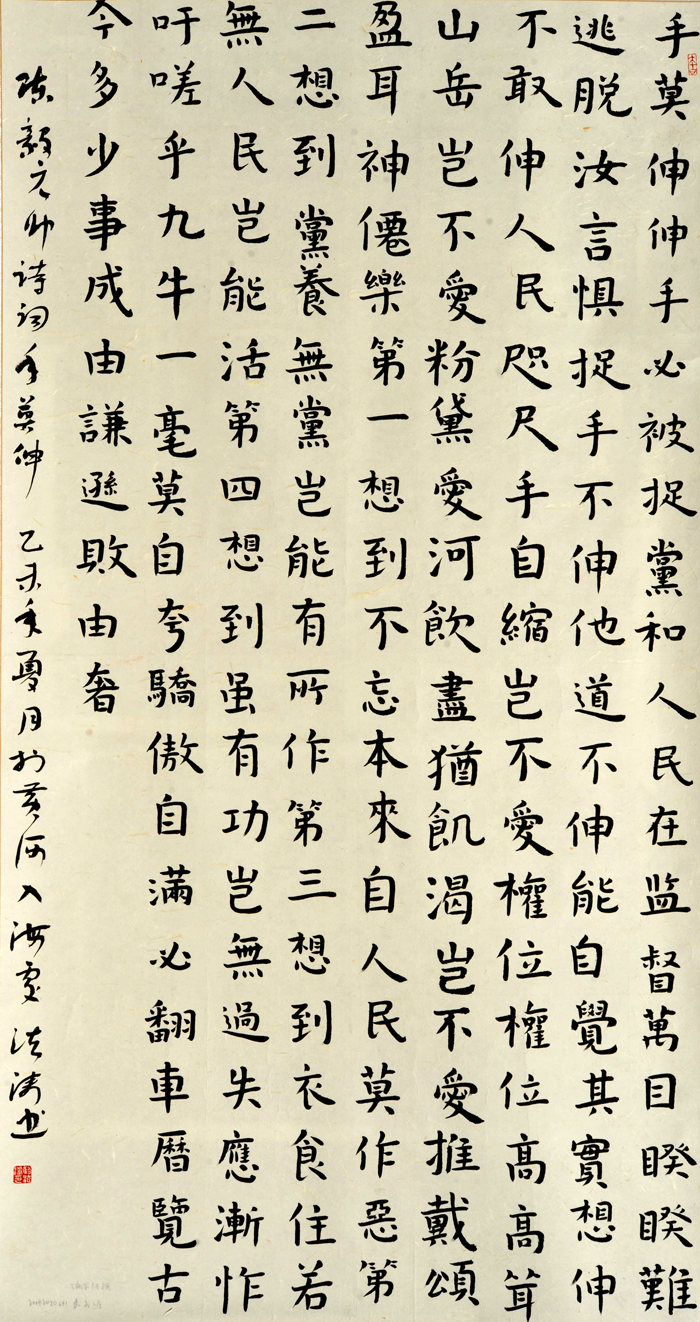 手莫伸伸手必被捉黨和人民在监督萬目睽睽難
逃脱汝言惧捉手不伸他道不伸能自覺其實想伸
不敢伸人民咫尺手自縮岂不愛權位權位高高耸
山岳岂不愛粉黛愛河飲盡猶飢渴岂不愛推戴頌
盈耳神僊樂第一想到不忘本來自人民莫作惡第
二想到黨養無黨岂能有所作第三想到衣食住若
無人民岂能活第四想到虽有功岂無過失應漸怍
吁嗟乎九牛一毫莫自夸驕傲自滿必翻車曆覽古
今多少事成由謙遜敗由奢
陈毅元帅詩词手莫伸 乙未年夏月於黄河入海處 洪涛书